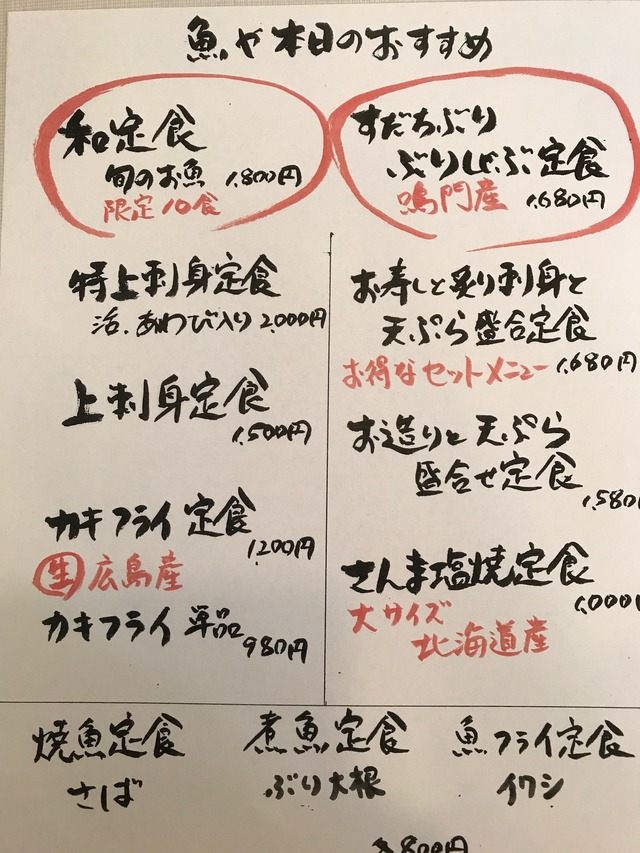 魚や本日のおすすめ
和定食
旬のお魚 1,800円
限定10食
特上刺身定食
活、あわび入り 2,000円
上刺身定食
1,500円
カキフライ定食
1,200円
生 広島産
カキフライ 単品
980円
すだちぶり
ぶりしゃぶ定食
鳴門産 1,680円
お寿しと炙り刺身と
天ぷら盛合定食
お得なセットメニュー 1,680円
お造りと天ぷら
盛合せ定食
1,580
さんま塩焼定食
1,000
大サイズ
北海道産
焼魚定食
さば
煮魚定食
ぶり大根
魚フライ定食
イワシ
800円